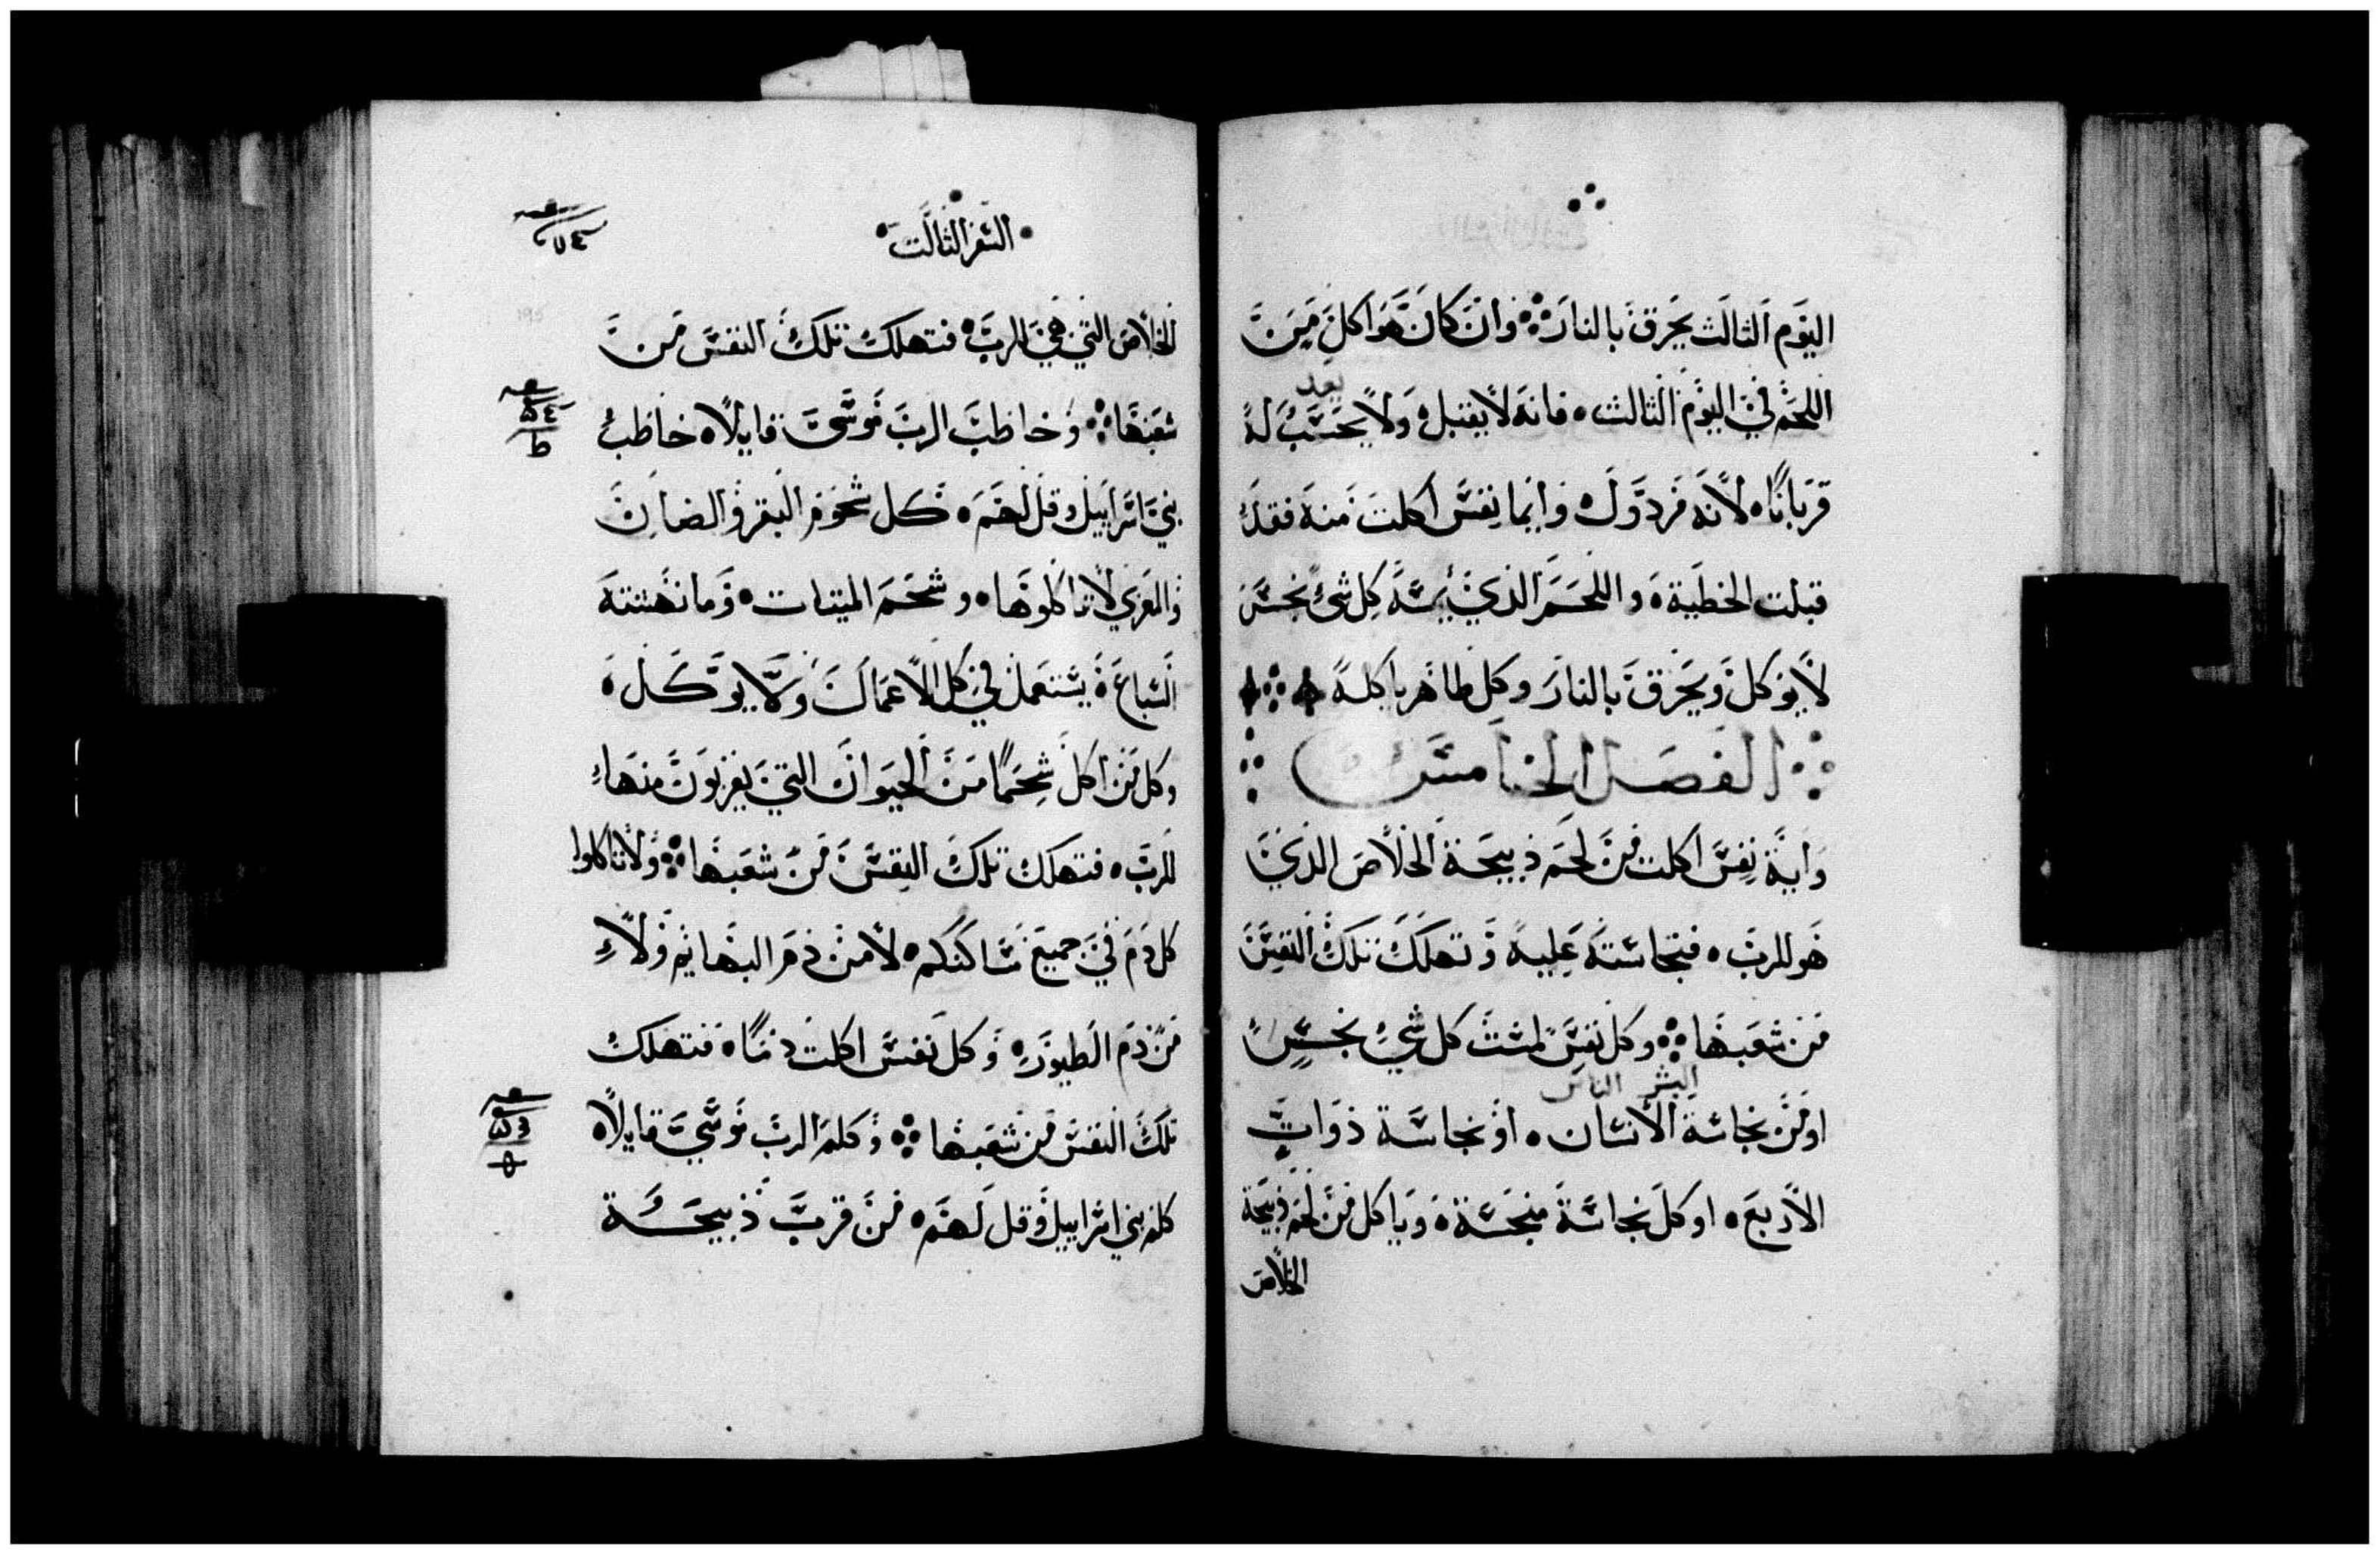 اليوم الثالث يحرق بالنار وان كان هو اكل من
بعد
اللحم في اليوم الثالث فانه لا يقبل ولا يحسب له
قربانا لانه مردول وايما نفس اكلت منه فقد
قبلت الخطية واللحم الذي يمسه كل شئ نجس
لا يوكل ويحرق بالنار وكل طاهر ياكله
الفصل الخامس
واية نفس اكلت من لحم ذبيحة الخلاص الذي
هو للرب فنجاسته عليه وتهلك تلك النفس
من شعبها وكل نفس لمست كل شي نجس
البشر الناس
او من نجاسة الانسان او نجاسة ذوات
الاربع او كل نجاسة منجسة وياكل من لحم ذبيحة
الخلاص
السفر الثالت
الخلاص التي هي للرب فتهلك تلك النفس من
شعبها وخاطب الرب موسى قايلا خاطب
بني اسراييل وقل لهم كل شحوم البقر والضان
والمعزي لا تاكلوها وشحم الميتات وما نهشته
السباع يستعمل في كل الاعمال ولا يوكل
وكل من اكل شحما من الحيوان التي يقربون منها
للرب فتهلك تلك النفس من شعبها ولا تاكلوا
كل دم في جميع مساكنكم لا من دم البهايم ولا
من دم الطيور وكل نفس اكلت دما فتهلك
تلك النفس من شعبها وكلم الرب موسي قايلا
كلم بني اسراييل وقل لهم من قرب ذبيحة